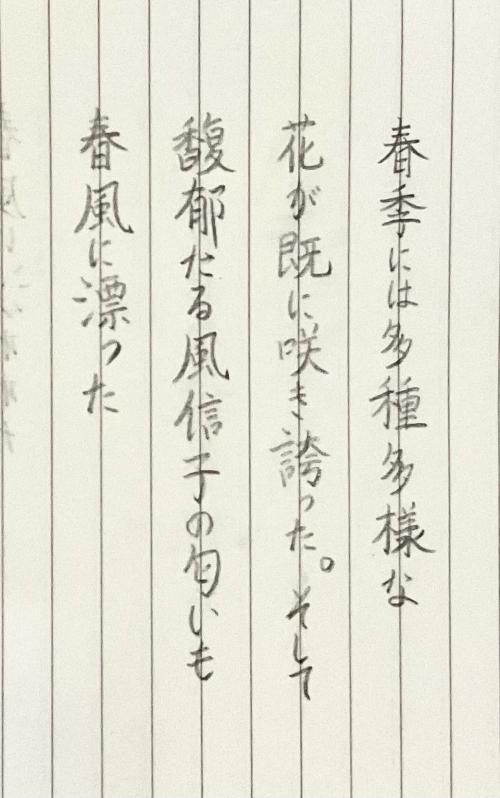 春季には多種多様な
花が既に咲き誇った。そして
馥郁たる風信子の匂いも
春風に漂った